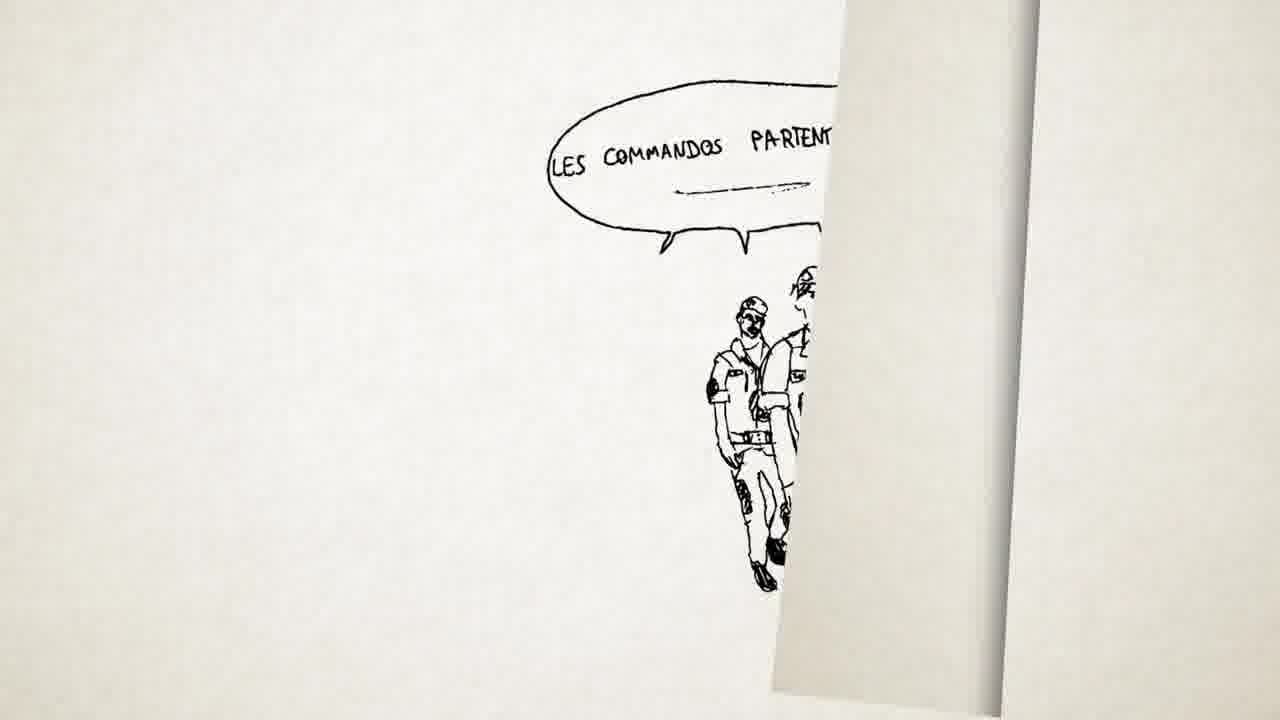 LES COMMANDOS PARTENT